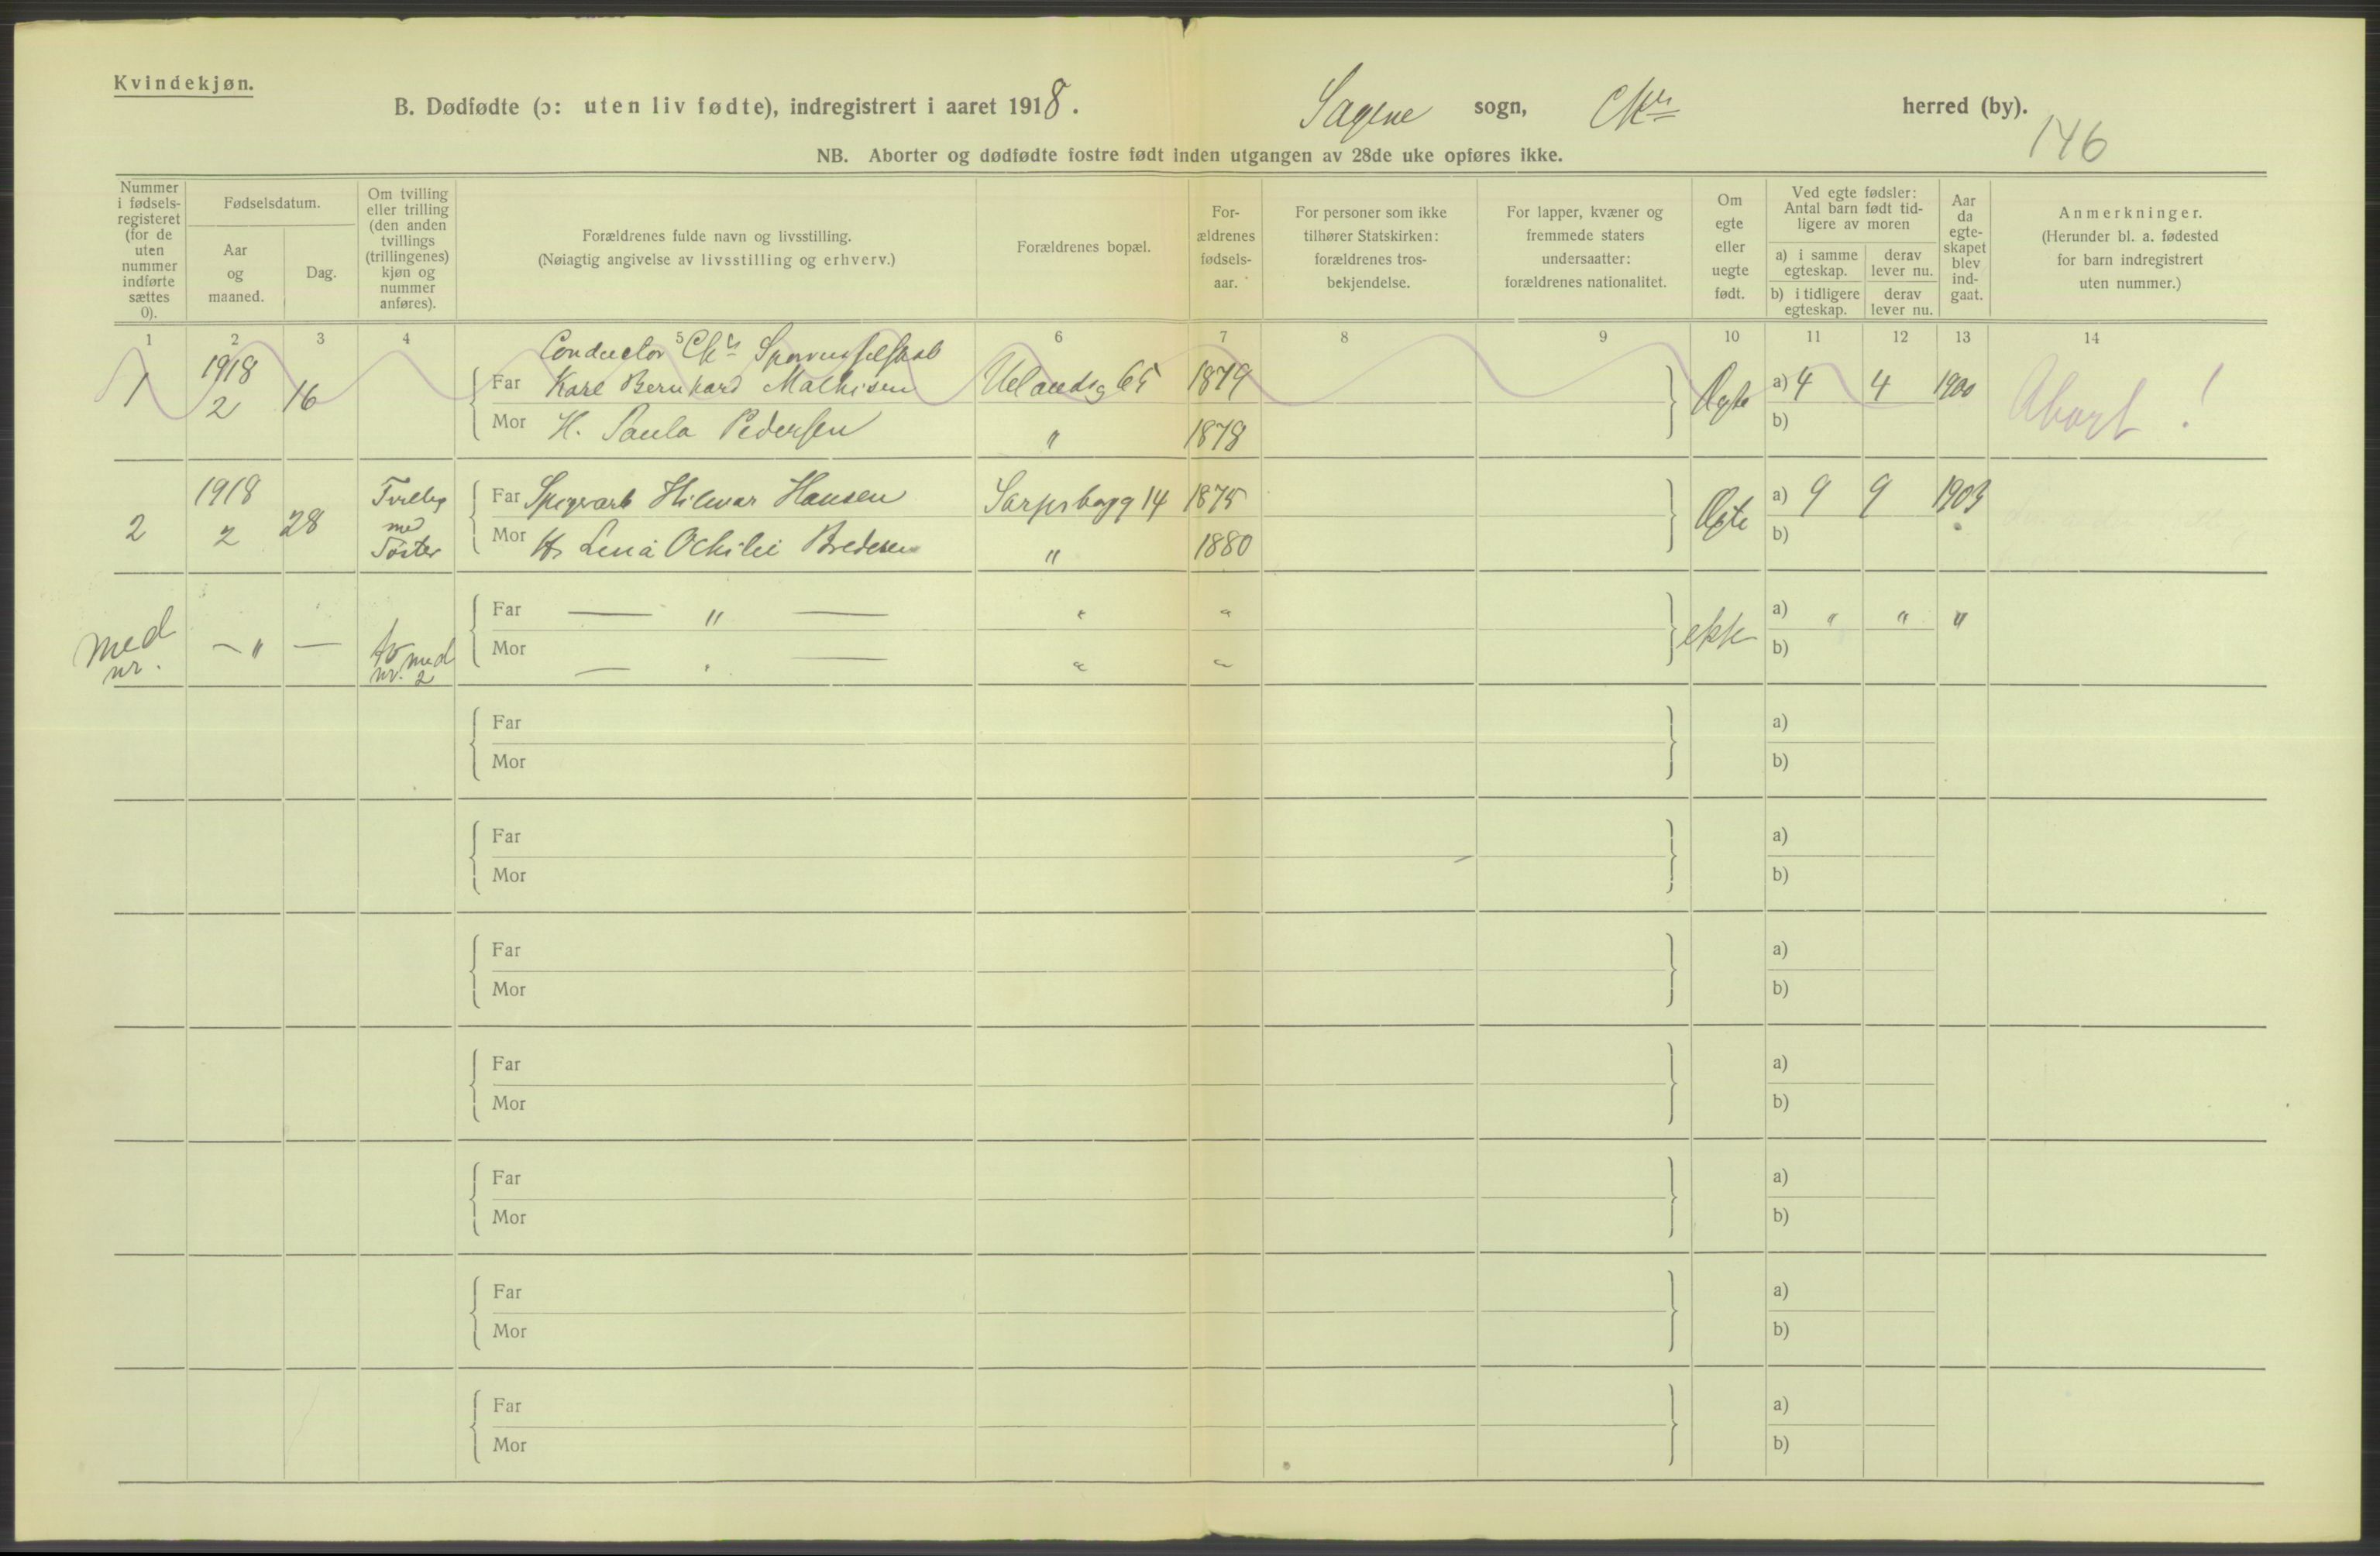 Kvindekjøn.
B. Dødfødte (ɔ: uten liv fødte), indregistrert i aaret 1918. Sagene sogn, Chr herred (by).
146
NB. Aborter og dødfødte fostre født inden utgangen av 28de uke opføres ikke.
Nummer i fødsels-registeret (for de uten nummer indførte sættes 0).
Fødselsdatum.
Aar og maaned.
Dag.
Om tvilling eller trilling (den anden tvillings (trillingenes) kjøn og nummer anføres).
Forældrenes fulde navn og livsstilling.
(Nøiagtig angivelse av livsstilling og erhverv.)
Forældrenes bopæl.
For-ældrenes fødsels-aar.
For personer som ikke tilhører Statskirken: forældrenes tros-bekjendelse.
For lapper, kvæner og fremmede staters undersaatter: forældrenes nationalitet.
Om egte eller uegte født.
Ved egte fødsler: Antal barn født tid-ligere av moren
a) i samme egteskap. derav lever nu.
b) i tidligere egteskap. derav lever nu.
Aar da egte-skapet blev ind-gaat.
Anmerkninger.
(Herunder bl. a. fødested for barn indregistrert uten nummer.)
1 2 3 4 5 6 7 8 9 10 11 12 13 14
Conductor Chr Sporveisselskab
1 1918 2 16 Far Karl Bernhard Mathisen Uelandsg 65 1879 Ægte a) 4 4 1900 Abort!
Mor H. Paula Pedersen " 1878 b)
2 1918 2 28 Tvilling med Søster Far Hilmar Hansen Sarpsborgg 14 1875 Ægte a) 9 9 1903
Mor H. Lina Bredesen " 1880 b)
Med nr. — " — to med nr. 2 Far — " — " " ekte a) " " "
Mor — " — " " b)
Far a)
Mor b)
Far a)
Mor b)
Far a)
Mor b)
Far a)
Mor b)
Far a)
Mor b)
Far a)
Mor b)
Far a)
Mor b)